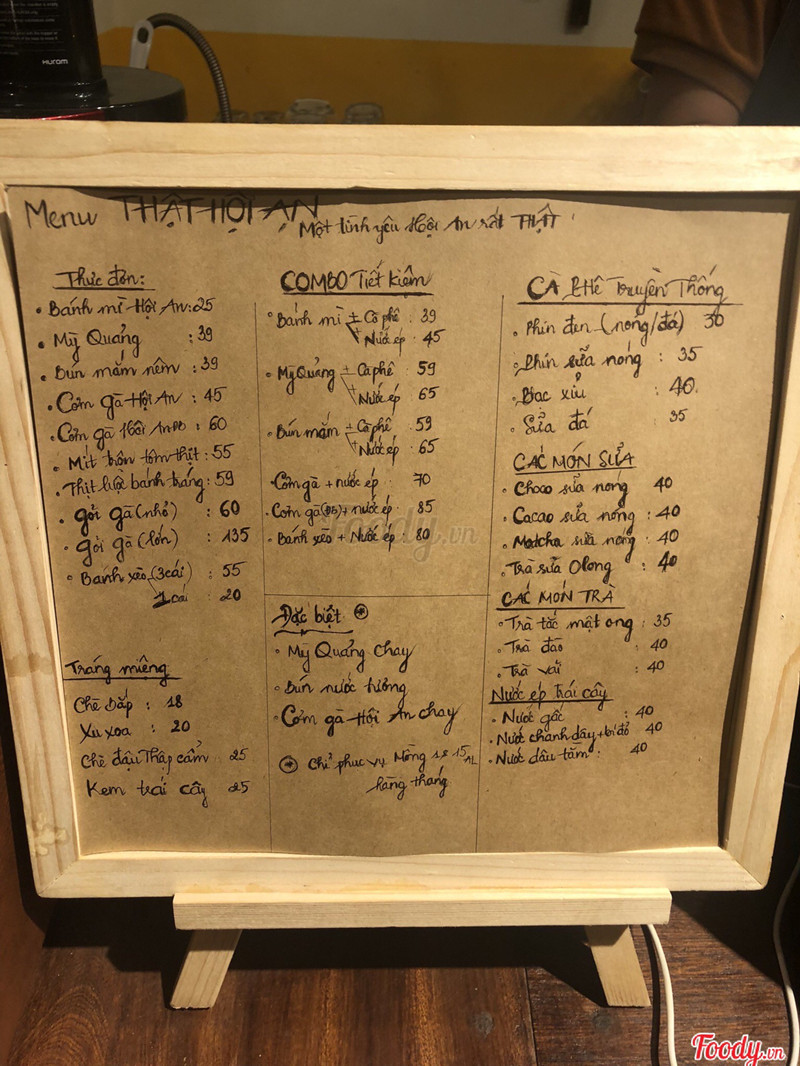 HUROM
Menu THẬT HỘI AN
Một tình yêu Hội An rất THẬT
Thực đơn:
Bánh mì Hội An: 25
Mỳ Quảng : 39
Bún mắm nêm : 39
Cơm gà Hội An : 45
Cơm gà Hội An ĐB : 60
Mít trộn tôm thịt : 55
Thịt luộc bánh tráng : 59
gỏi gà (nhỏ) : 60
gỏi gà (lớn) : 135
Bánh xèo (3 cái) : 55
1 cái : 20
Tráng miệng
Chè bắp : 18
Xu xoa : 20
Chè đậu Thập cẩm 25
Kem trái cây 25
COMBO Tiết kiệm
Bánh mì + Cà phê : 39
+ Nước ép : 45
Mỳ Quảng + Cà phê 59
+ Nước ép 65
Bún mắm + Cà phê . 59
+ Nước ép . 65
Cơm gà + nước ép . 70
Cơm gà (ĐB) + nước ép . 85
Bánh xèo + Nước ép : 80
Đặc biệt *
Mỳ Quảng chay
Bún nước tương
Cơm gà Hội An chay
* Chỉ phục vụ Mồng 1 & 15 AL
hàng tháng
CÀ PHÊ Truyền Thống
Phin đen (nóng/đá) 30
Phin sữa nóng : 35
Bạc xỉu : 40
Sữa đá 35
CÁC MÓN SỮA
Choco sữa nóng 40
Cacao sữa nóng : 40
Matcha sữa nóng . 40
Trà sữa Olong : 40
CÁC MÓN TRÀ
Trà tắc mật ong : 35
Trà đào . 40
Trà vải : 40
Nước ép trái cây
Nước gấc : 40
Nước chanh dây + bí đỏ 40
Nước dâu tằm : 40
Foody.vn
Foody.vn